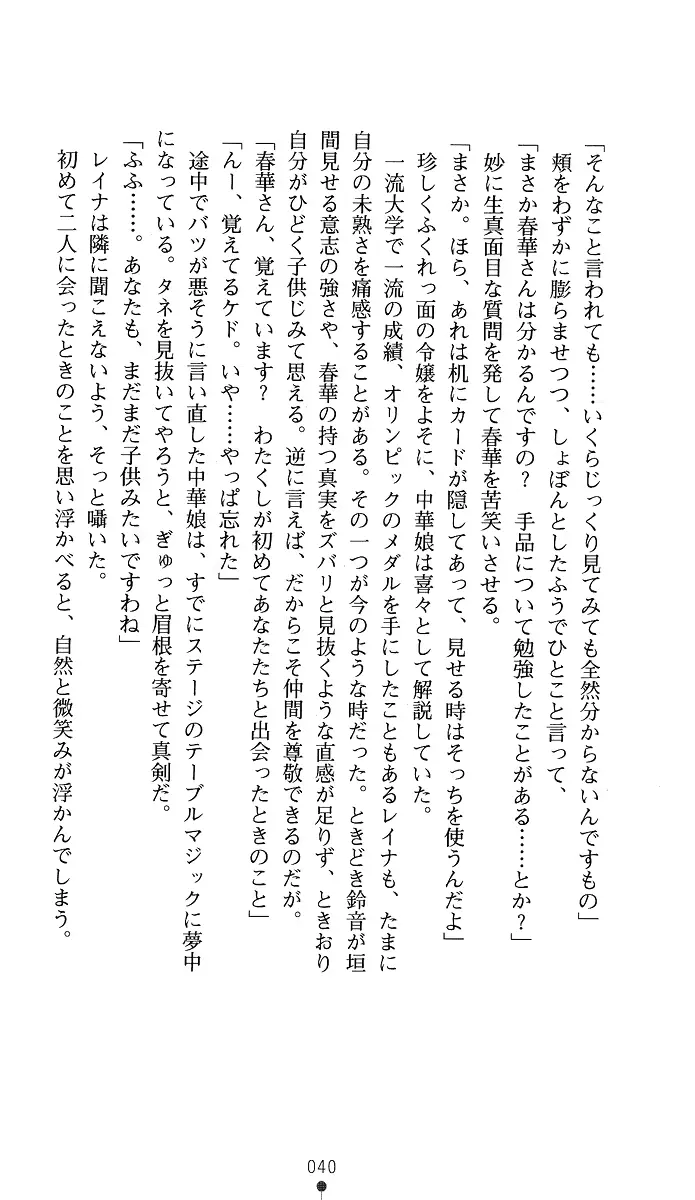 「そんなこと言われても……いくらじっくり見てみても全然分からないんですもの」
頬をわずかに膨らませつつ、しょぼんとしたふうでひとこと言って、
「まさか春華さんは分かるんですの？　手品について勉強したことがある……とか？」
妙に生真面目な質問を発して春華を苦笑いさせる。
「まさか。ほら、あれは机にカードが隠してあって、見せる時はそっちを使うんだよ」
珍しくふくれっ面の令嬢をよそに、中華娘は喜々として解説していた。
一流大学で一流の成績、オリンピックのメダルを手にしたこともあるレイナも、たまに
自分の未熟さを痛感することがある。その一つが今のような時だった。ときどき鈴音が垣
間見せる意志の強さや、春華の持つ真実をズバリと見抜くような直感が足りず、ときおり
自分がひどく子供じみて思える。逆に言えば、だからこそ仲間を尊敬できるのだが。
「春華さん、覚えています？　わたくしが初めてあなたたちと出会ったときのこと」
「んー、覚えてるケド。いや……やっぱ忘れた」
途中でバツが悪そうに言い直した中華娘は、すでにステージのテーブルマジックに夢中
になっている。タネを見抜いてやろうと、ぎゅっと眉根を寄せて真剣だ。
「ふふ……。あなたも、まだまだ子供みたいですわね」
レイナは隣に聞こえないよう、そっと囁いた。
初めて二人に会ったときのことを思い浮かべると、自然と微笑みが浮かんでしまう。
040